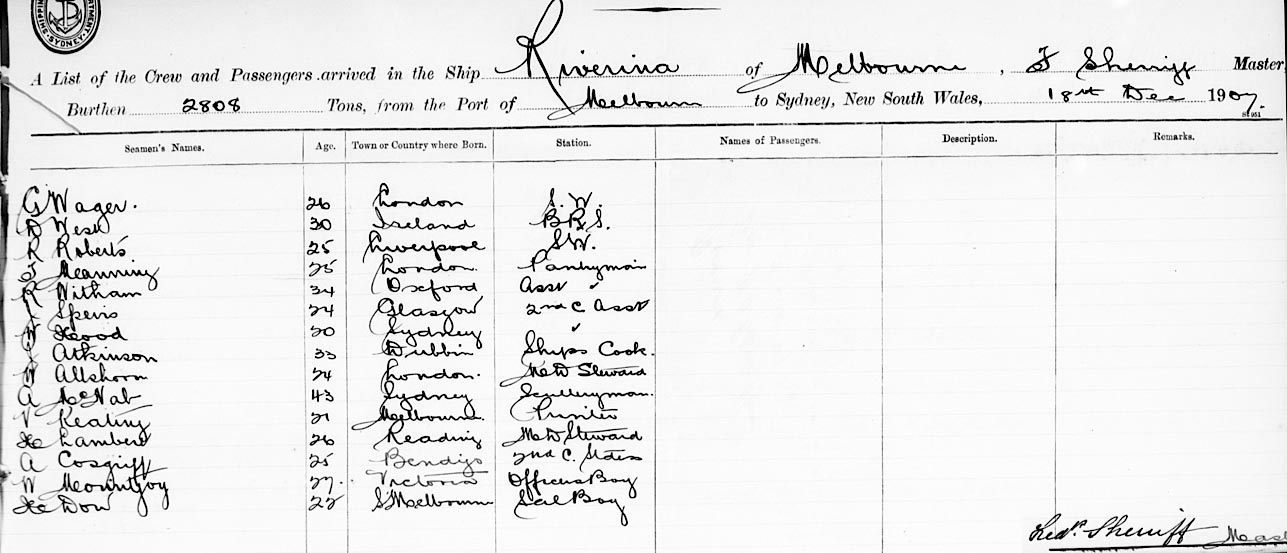 SHIPPING DEPARTMENT SYDNEY
A List of the Crew and Passengers arrived in the Ship Riverina of Melbourne, F Sherriff Master,
Burthen 2808 Tons, from the Port of Melbourn to Sydney, New South Wales, 18th Dec 1907.
Seamen's Names. Age. Town or Country where Born. Station. Names of Passengers. Description. Remarks.
G Wager. 26 London S. W.
West 30 Ireland B.R.S.
R Roberts 25 Liverpool S.W.
Meanning 25 London. Pantryman
R Witham 34 Oxford Asst ✓
Speirs 24 Glasgow 2nd C Asst
W Hood 20 Sydney ✓
Atkinson 33 Dubbin Ships Cook.
W Allshorn 24 London. Steward
A McNab 43 Sydney Sculleryman.
V Keating 21 Melbourne. Printer
H Lambert 26 Reading Steward
A Cosgriff 25 Bendigo 2nd C.
W Mountjoy 27. Victoria Officers Boy
H Dow 22 S Melbourne Boy
Fredk. Sherriff